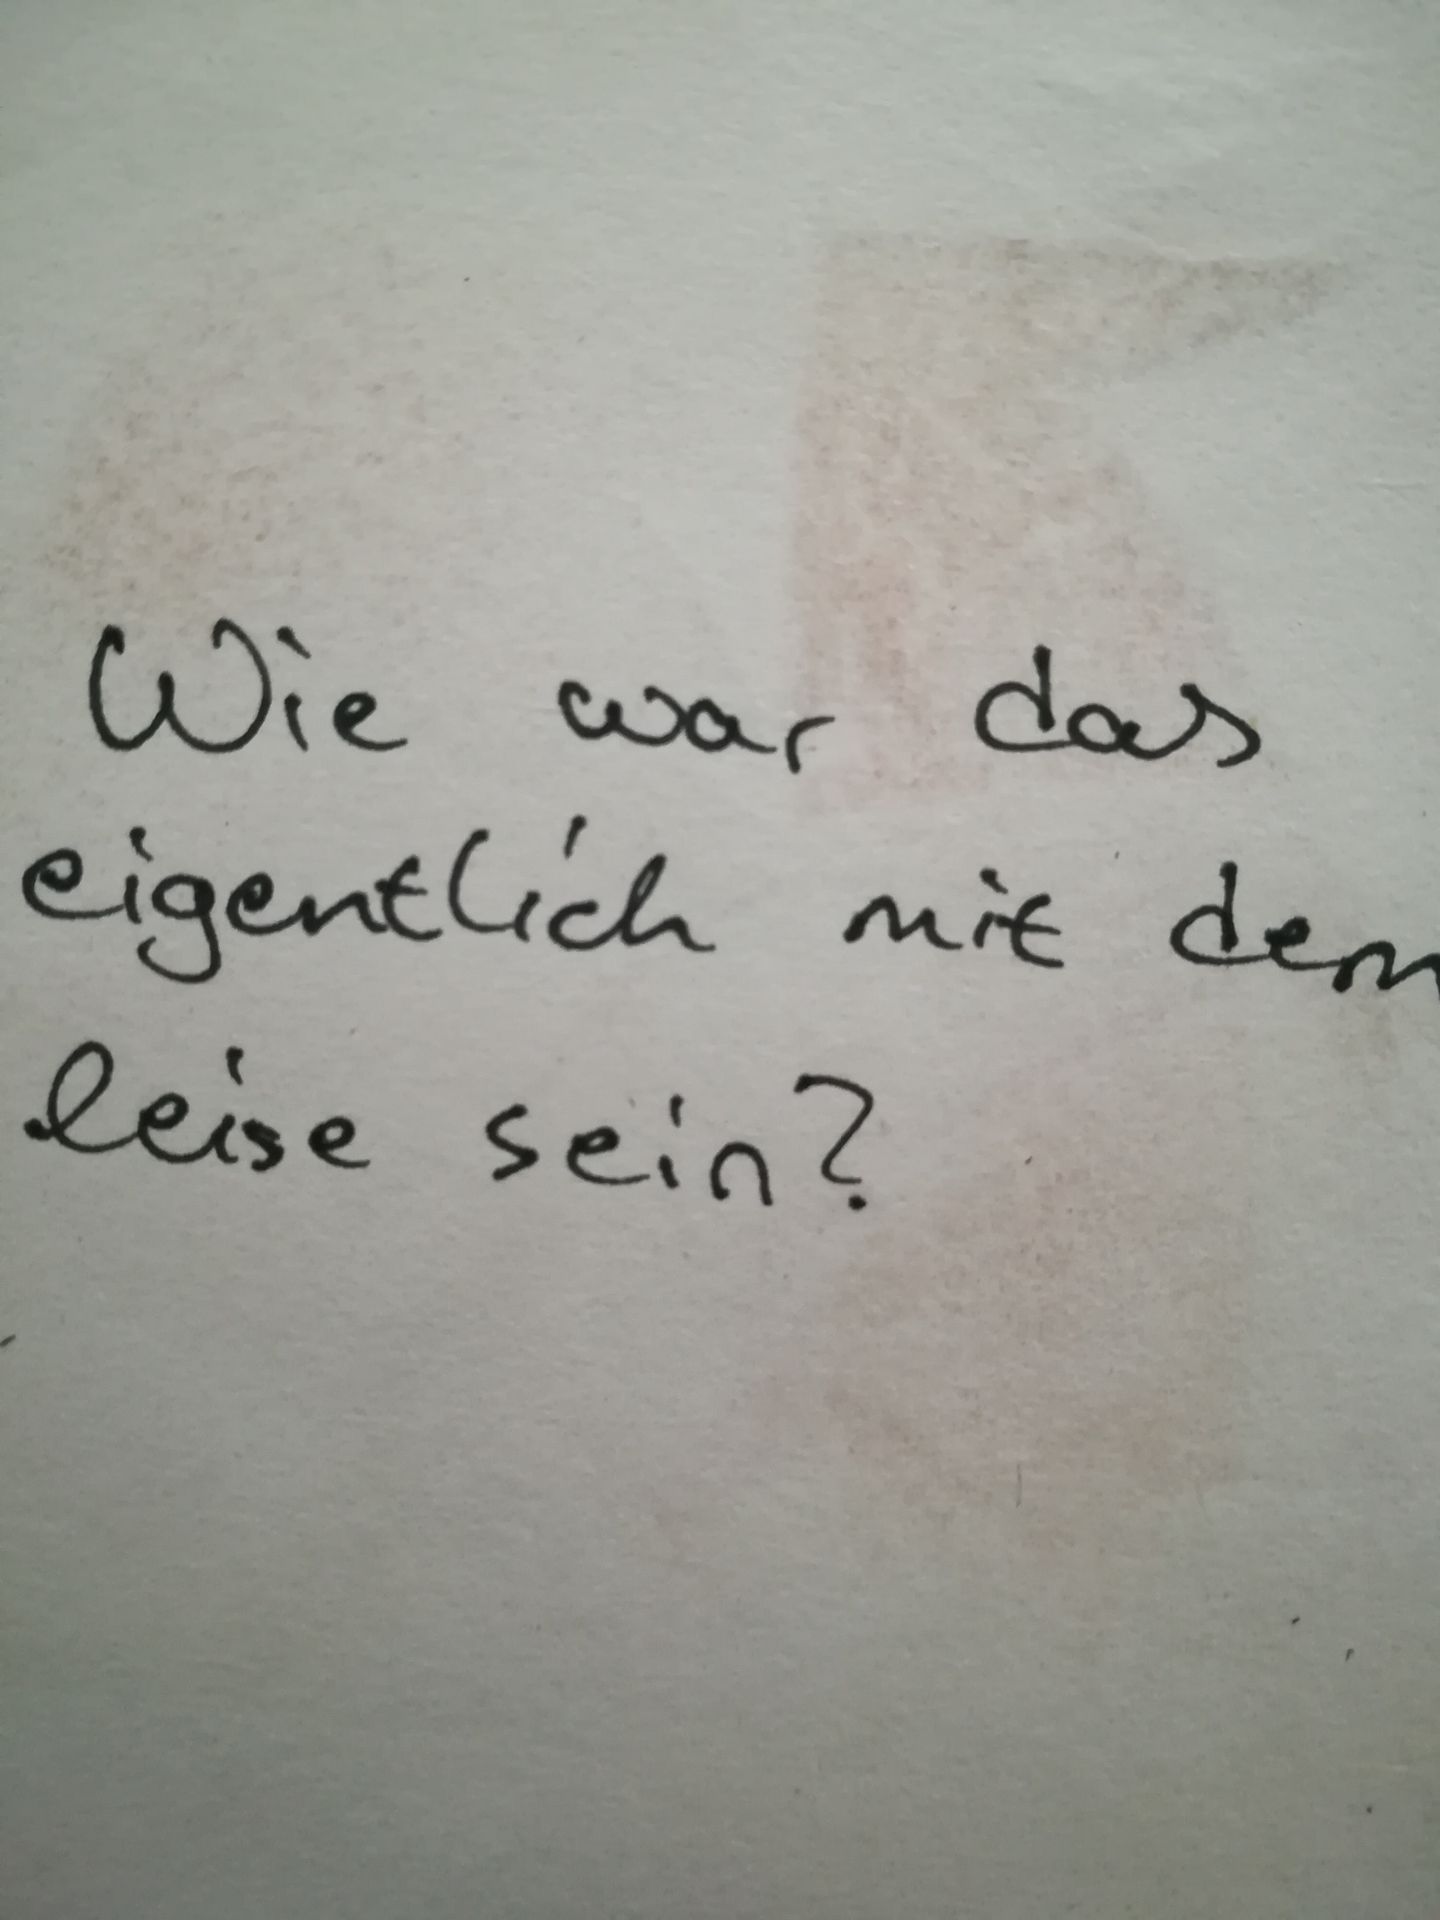 Wie war das
eigentlich mit dem
leise sein?